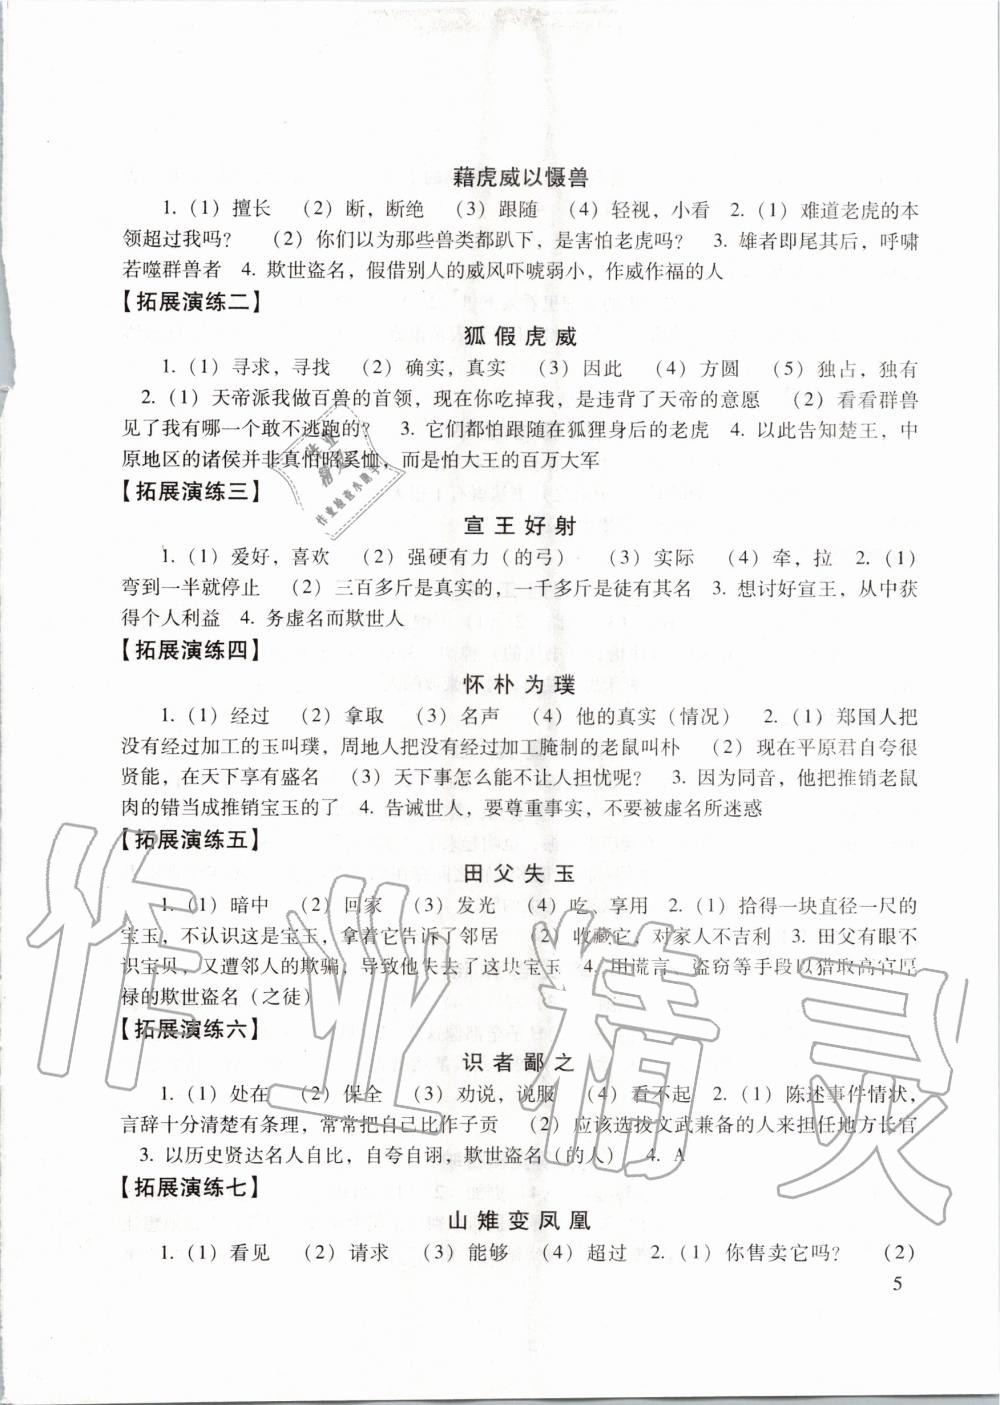 藉虎威以慑兽
1. (1) 擅长 (2) 断，断绝 (3) 跟随 (4) 轻视，小看 2. (1) 难道老虎的本
领超过我吗？ (2) 你们以为那些兽类都趴下，是害怕老虎吗？ 3. 雄者即尾其后，呼啸
若噬群兽者 4. 欺世盗名，假借别人的威风吓唬弱小，作威作福的人
【拓展演练二】
狐假虎威
1. (1) 寻求，寻找 (2) 确实，真实 (3) 因此 (4) 方圆 (5) 独占，独有
2. (1) 天帝派我做百兽的首领，现在你吃掉我，是违背了天帝的意愿 (2) 看看群兽
见了我有哪一个敢不逃跑的？ 3. 它们都怕跟随在狐狸身后的老虎 4. 以此告知楚王，中
原地区的诸侯并非真怕昭奚恤，而是怕大王的百万大军
【拓展演练三】
宣王好射
1. (1) 爱好，喜欢 (2) 强硬有力（的弓） (3) 实际 (4) 牵，拉 2. (1)
弯到一半就停止 (2) 三百多斤是真实的，一千多斤是徒有其名 3. 想讨好宣王，从中获
得个人利益 4. 务虚名而欺世人
【拓展演练四】
怀朴为璞
1. (1) 经过 (2) 拿取 (3) 名声 (4) 他的真实（情况） 2. (1) 郑国人把
没有经过加工的玉叫璞，周地人把没有经过加工腌制的老鼠叫朴 (2) 现在平原君自夸很
贤能，在天下享有盛名 (3) 天下事怎么能不让人担忧呢？ 3. 因为同音，他把推销老鼠
肉的错当成推销宝玉的了 4. 告诫世人，要尊重事实，不要被虚名所迷惑
【拓展演练五】
田父失玉
1. (1) 暗中 (2) 回家 (3) 发光 (4) 吃、享用 2. (1) 拾得一块直径一尺的
宝玉，不认识这是宝玉，拿着它告诉了邻居 (2) 收藏它，对家人不吉利 3. 田父有眼不
识宝贝，又遭邻人的欺骗，导致他失去了这块宝玉 4. 用谎言、盗窃等手段以猎取高官厚
禄的欺世盗名（之徒）
【拓展演练六】
识者鄙之
1. (1) 处在 (2) 保全 (3) 劝说，说服 (4) 看不起 2. (1) 陈述事件情状，
言辞十分清楚有条理，常常把自己比作子贡 (2) 应该选拔文武兼备的人来担任地方长官
3. 以历史贤达名人自比，自夸自诩，欺世盗名（的人） 4. A
【拓展演练七】
山雉变凤凰
1. (1) 看见 (2) 请求 (3) 能够 (4) 超过 2. (1) 你售卖它吗？ (2)
5
作业精灵
作业精灵
作业检查小助手